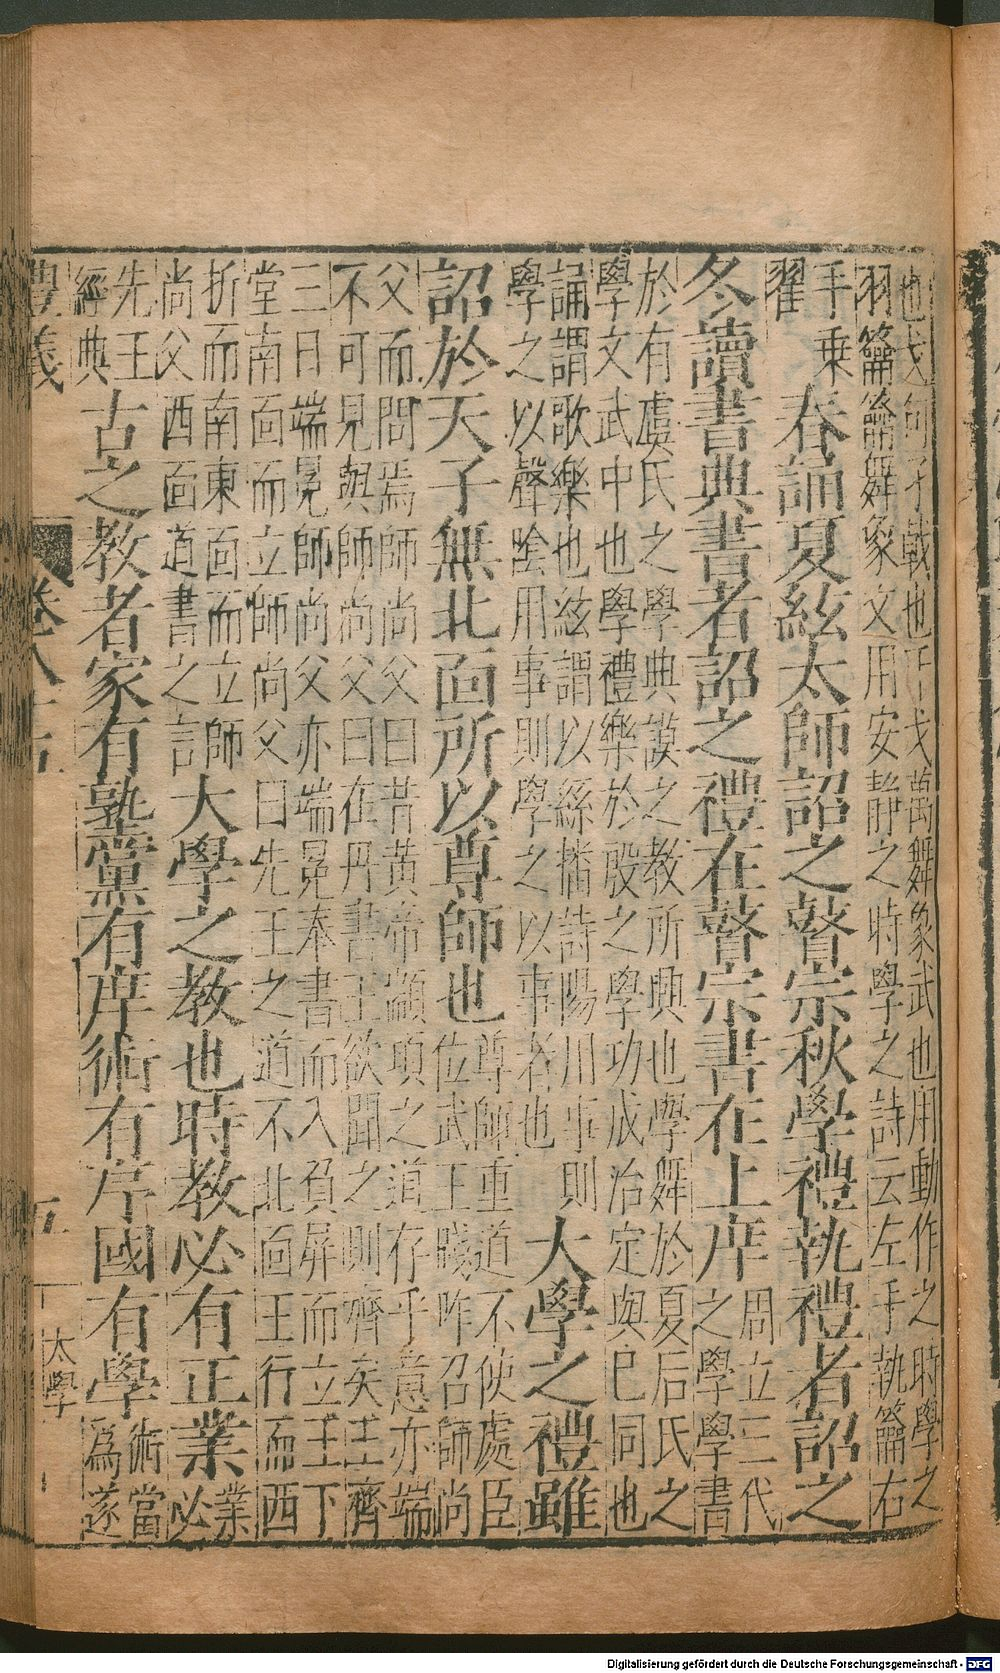 也戈句矛戟也干戈萬舞象武也用動作之時學之
羽籥籥舞象文用安靜之時學之詩云左手執籥右
手乗
翟
春誦夏絃太師詔之瞽宗秋學禮執禮者詔之
冬讀書典書者詔之禮在瞽宗書在上庠
周立三代
之學學書
於有虞氏之學典謨之教所興也學舞於夏后氏之
學文武中也學禮樂於殷之學功成治定與巳同也
誦謂歌樂也絃謂以絲播詩陽川事則
學之以聲唫用事則學之以事者也
大學之禮雖
詔於天子無北面所以尊師也
尊師重道不使處臣
位武王踐阼召師尚
父而問焉師尚父曰昔黃帝顓頊之道存乎意亦端
不可見與師尚父曰在丹書王欲聞之則齊矣王齊
三日端冕師尚父亦端冕奉書而入負屏而立王下
堂南面而立師尚父曰先王之道不北面王行而西
折而南東面而立師
尚父西面道書之言
大學之教也時教必有正業
業
必
先王
經典
古之教者家有塾黨有庠術有序國有學
術當
爲遂
義
卷八
五
太學
Digitalisierung gefördert durch die Deutsche Forschungsgemeinschaft - DFG